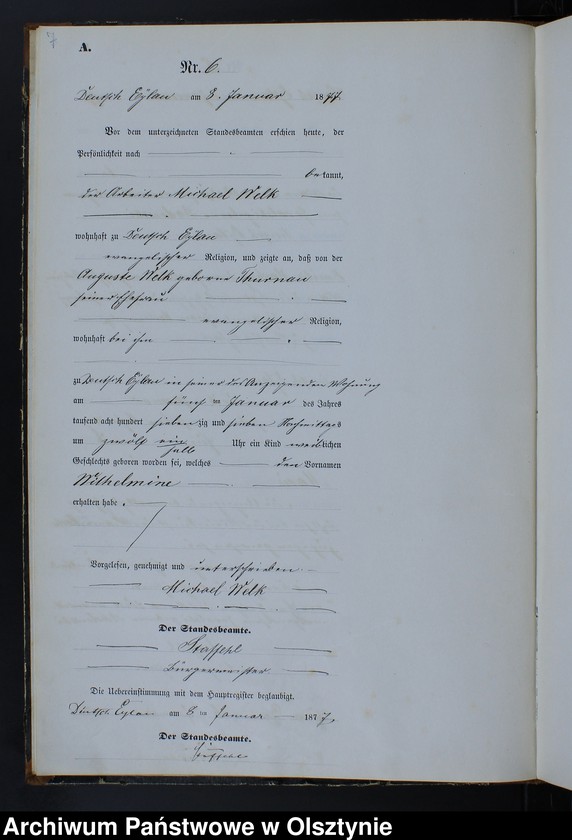 A.
Nr. 6.
Deutsch Eylau am 8. Januar 1877
Vor dem unterzeichneten Standesbeamten erschien heute, der
Persönlichkeit nach
bekannt,
der Arbeiter Michael Welk
wohnhaft zu Deutsch Eylau
evangelischer Religion, und zeigte an, daß von der
Auguste Welk geborene Thurnau
seiner Ehefrau
evangelischer Religion,
wohnhaft bei ihm
zu Deutsch Eylau in seiner des Anzeigenden Wohnung
am fünf ten Januar des Jahres
tausend acht hundert siebenzig und sieben Nachmittags
um zwölf ein halb Uhr ein Kind weiblichen
Geschlechts geboren worden sei, welches den Vornamen
Wilhelmine
erhalten habe.
Vorgelesen, genehmigt und unterschrieben
Michael Welk
Der Standesbeamte.
Bürgermeister
Die Uebereinstimmung mit dem Hauptregister beglaubigt.
Deutsch Eylau am 8 ten Januar 1877.
Der Standesbeamte.
Archiwum Państwowe w Olsztynie